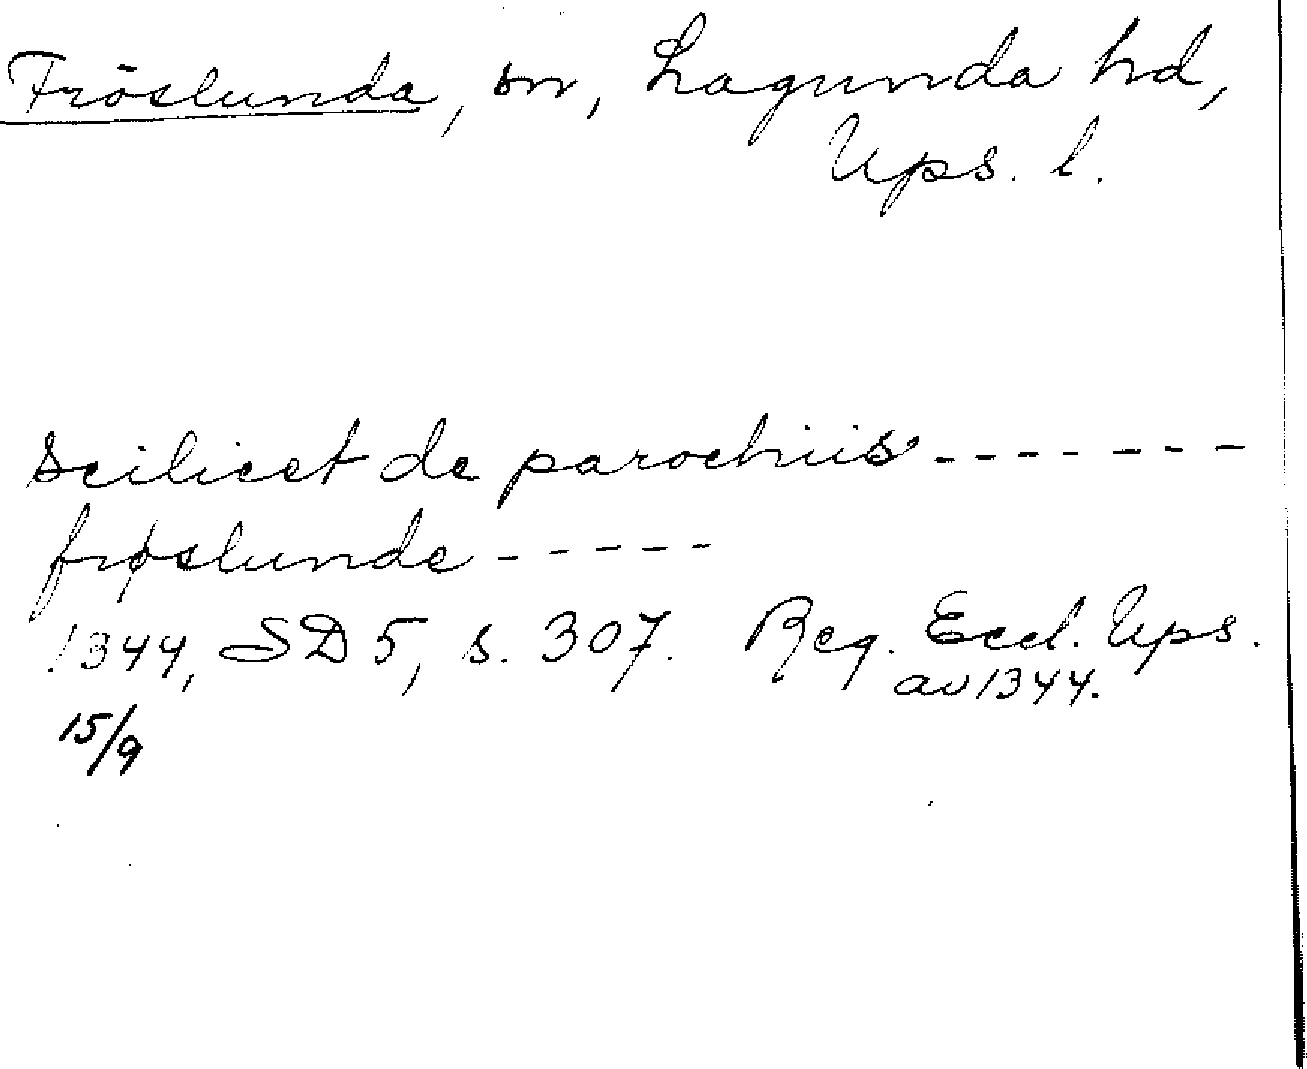 Fröslunda, sn, Lagunda hd,
Ups. l.
Scilicet de parochiis -------
frøslunde -----
1344, SD 5, s. 307. Reg. Eccl. Ups.
av 1344.
15/9